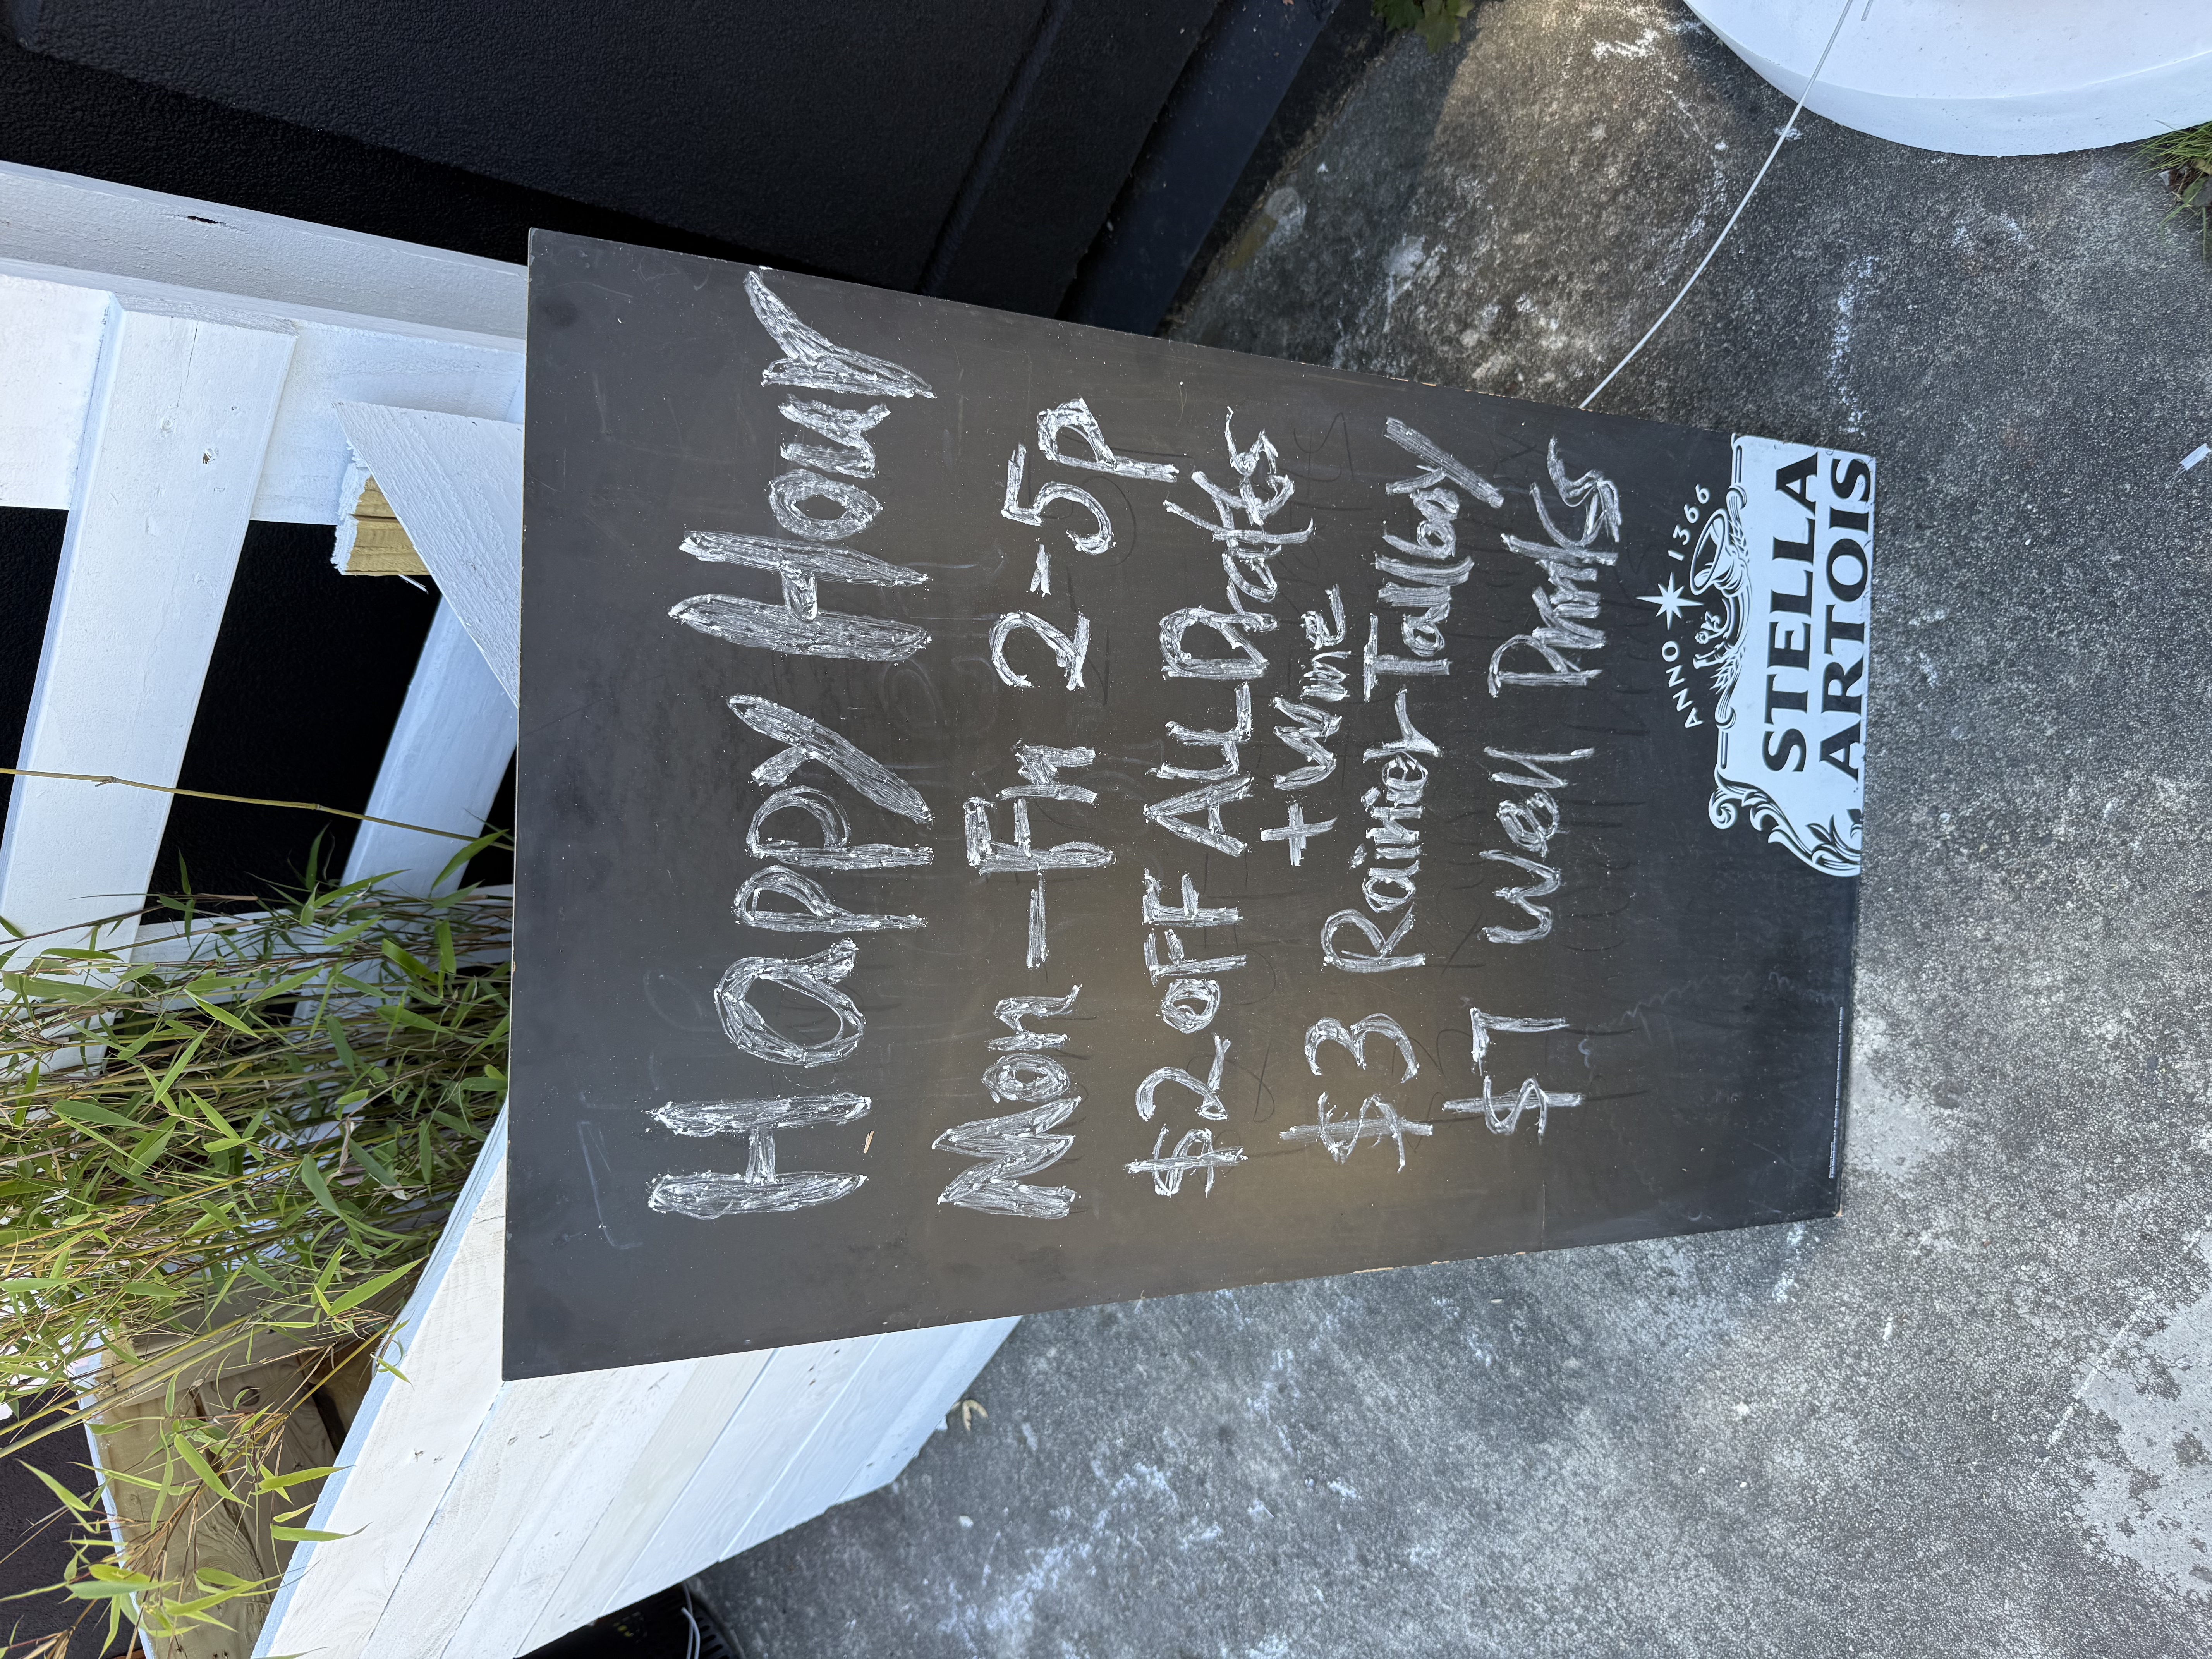 Happy Hour
Mon - Fri 2-5p
$2 off ALL Drafts
+ Wine
$3 Rainier Tallboy
$7 Well Drinks
ANNO 1366
STELLA
ARTOIS